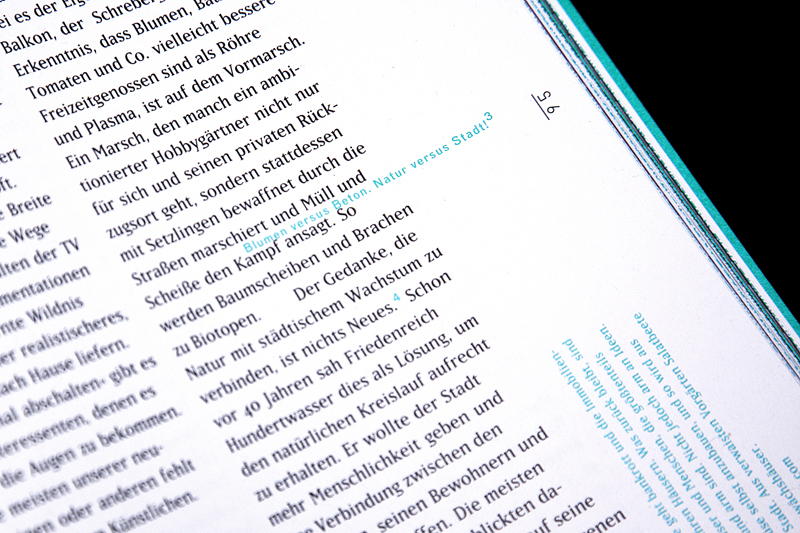 ert
oft.
e Breite
e Wege
lten der TV
mentationen
nte Wildnis
er realistischeres,
ach Hause liefern.
nal abschalten‹ gibt es
teressenten, denen es
die Augen zu bekommen.
e meisten unserer neu-
gen oder anderen fehlt
n Künstlichen.
ei es der
Balkon, der Schreberg
Erkenntnis, dass Blumen, Bau
Tomaten und Co. vielleicht bessere
Freizeitgenossen sind als Röhre
und Plasma, ist auf dem Vormarsch.
Ein Marsch, den manch ein ambi-
tionierter Hobbygärtner nicht nur
für sich und seinen privaten Rück-
zugsort geht, sondern stattdessen
mit Setzlingen bewaffnet durch die
Straßen marschiert und Müll und
Scheiße den Kampf ansagt. So
werden Baumscheiben und Brachen
zu Biotopen. Der Gedanke, die
Natur mit städtischem Wachstum zu
verbinden, ist nichts Neues.4 Schon
vor 40 Jahren sah Friedenreich
Hundertwasser dies als Lösung, um
den natürlichen Kreislauf aufrecht
zu erhalten. Er wollte der Stadt
mehr Menschlichkeit geben und
e Verbindung zwischen den
seinen Bewohnern und
ffen. Die meisten
blickten da-
auf seine
enen
Blumen versus Beton. Natur versus Stadt!3
56
e geht bankrot und die Immobilien-
hren Häusern. Was zurück bleibt, sind
user und Menschen, die größtenteils
und arm sind. Nicht jedoch arm an Ideen.
se selbst anzubauen, und so wird aus
Stadt. Aus verwaisten Vorgärten Salatbeete
chshäuser.
com